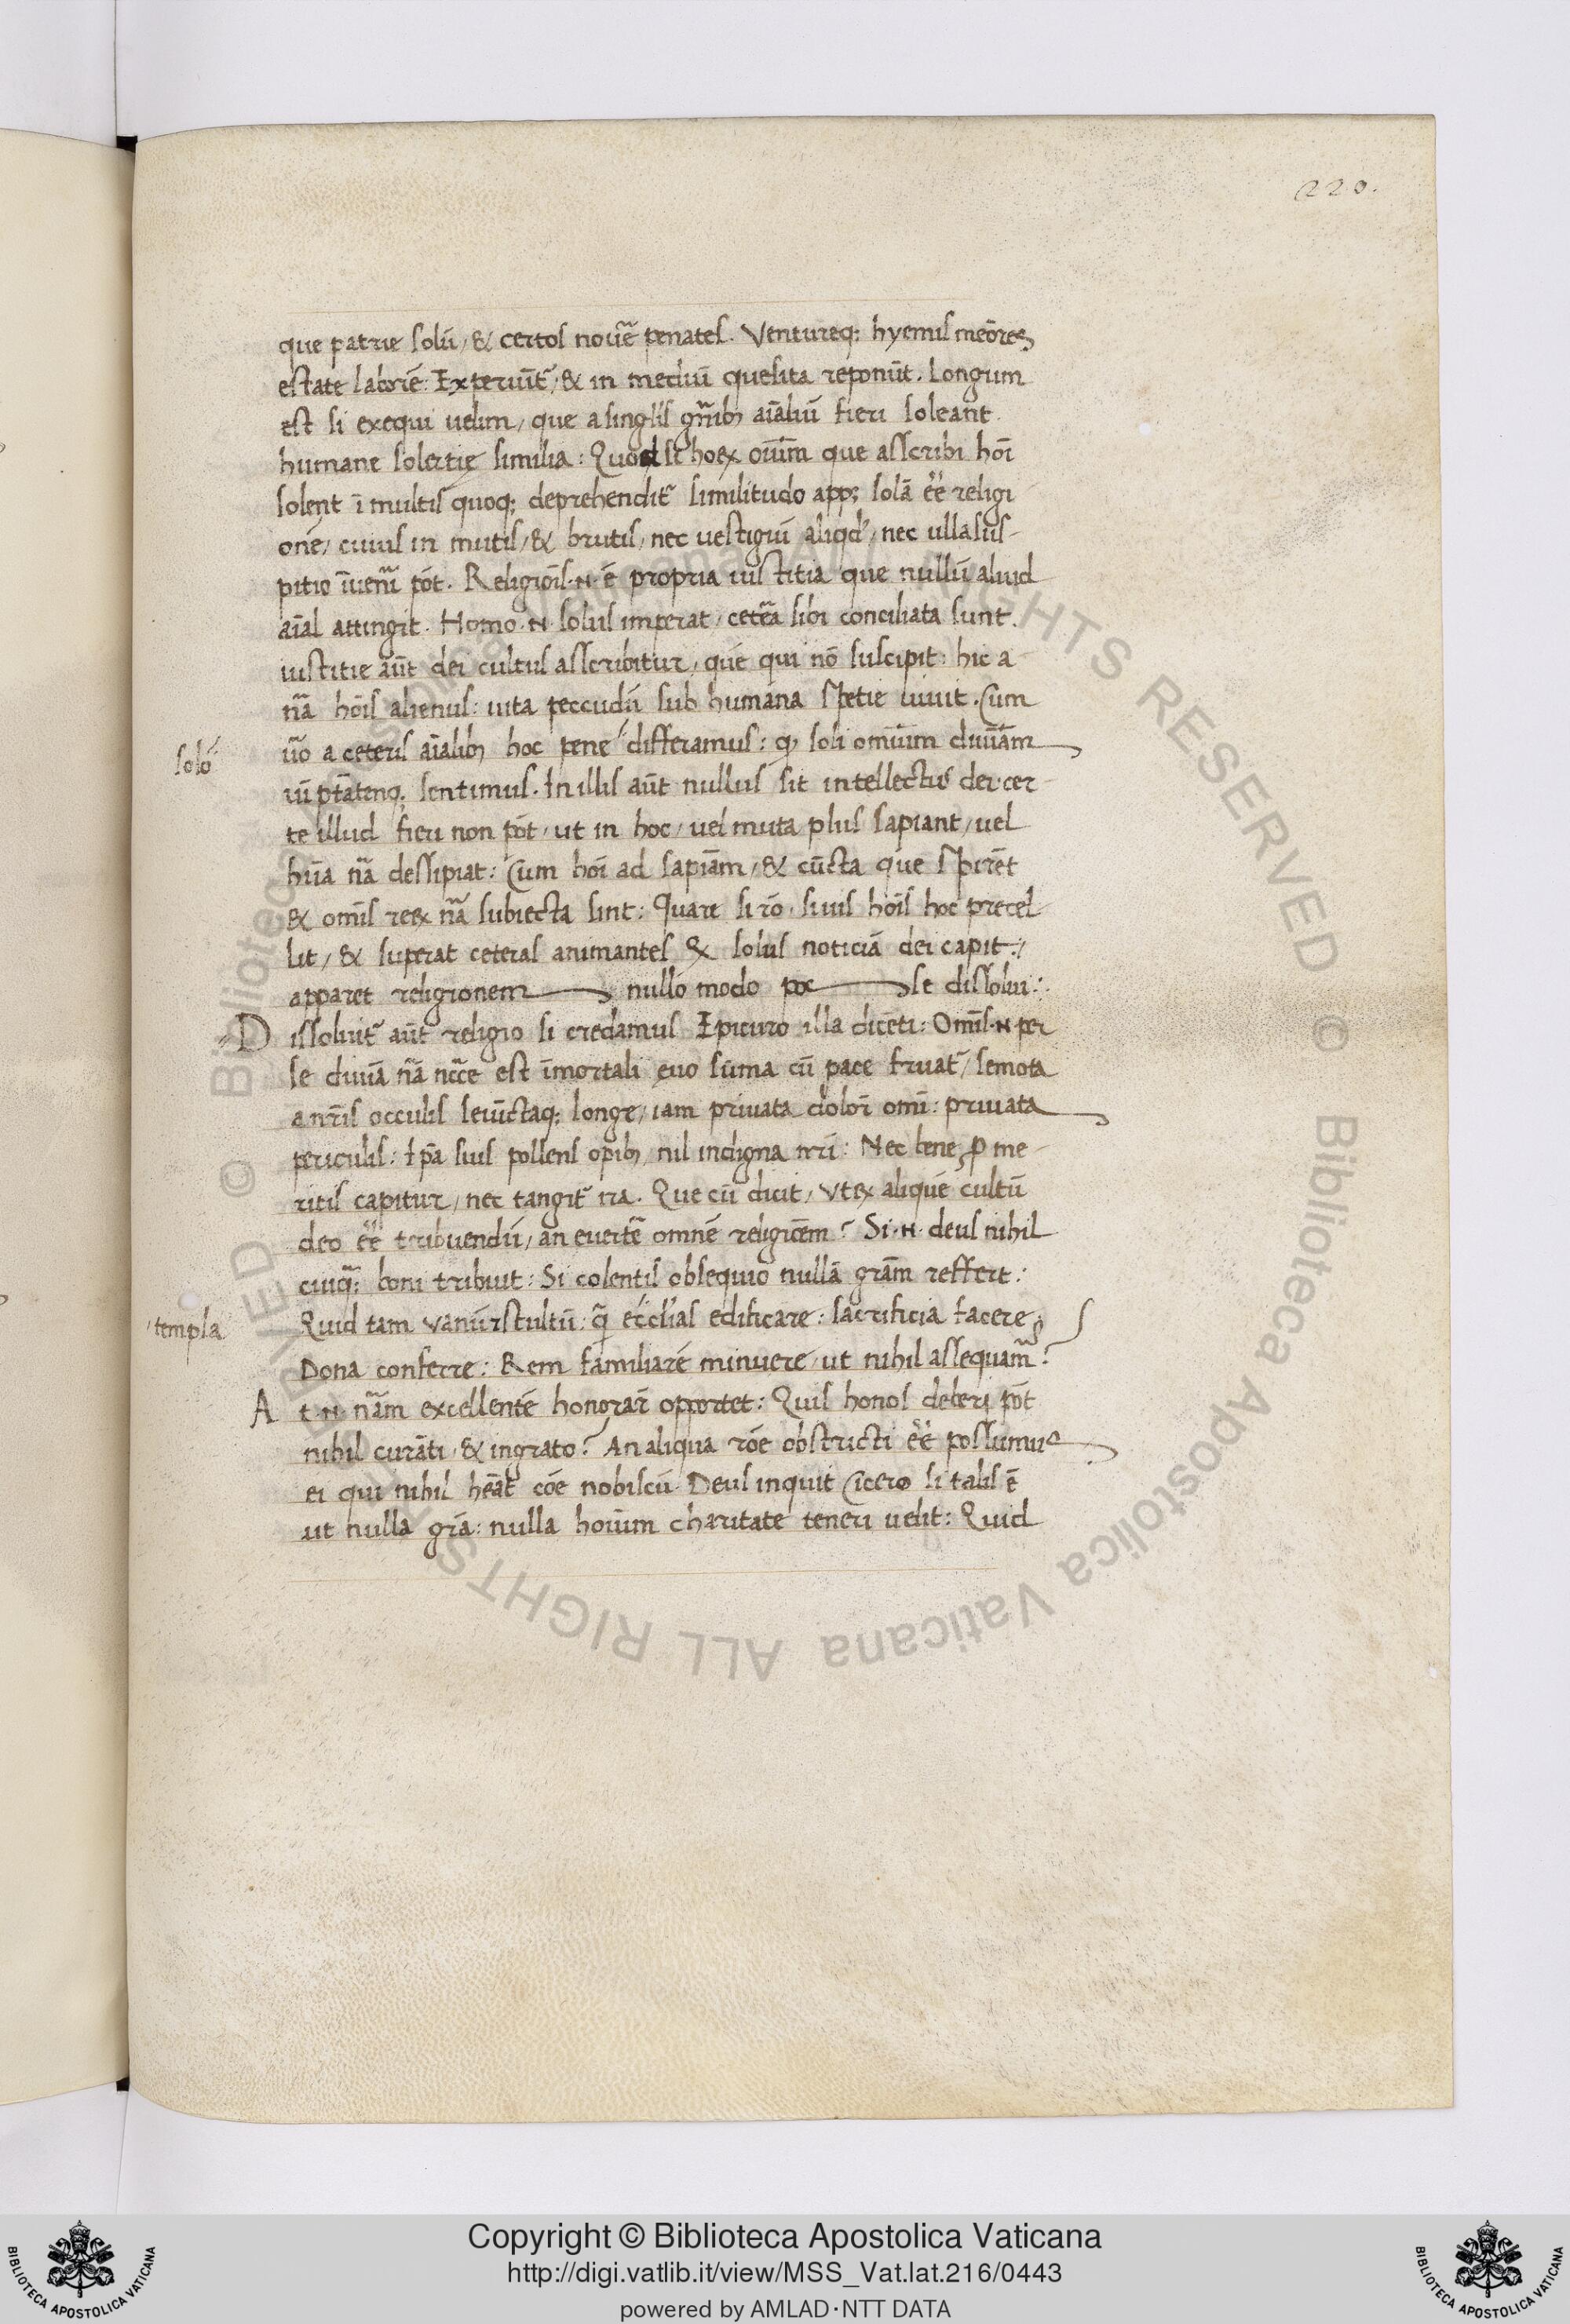 220.
que patrie solū, & certos nouēr penates. Ventureq; hyemis meōres
estate laborē: Experiūt̄, & in mediū quesita reponūt. Longum
est si exequi uelim, que a singlis gn̄ib; aīaliū fieri soleant
humane solertię similia: Quod si hoꝝ oīum que asscribi hoī
solent ī multis quoq; deprehendit̄ similitudo app; solā eē religi
onē, cuius in mutis, & brutis, nec uestigiū aliqd, nec ulla sus-
pitio īueniri pōt. Religiōis .N. ē propria iustitia que nullū aliud
aīal attingit. Homo .N. solus imperat, cetēa sibi conciliata sunt.
iustitie aūt dei cultus asscribitur, quē qui nō suscipit: hic a
nā hōis alienus: uita peccudū sub humana spetie uiuit. Cum
solo
ūo a ceteris aīalib; hoc pene differamus: q, soli omīum diuīam
uū ptātemq; sentimus. In illis aūt nullus sit intellectus dei cer-
te illud fieri non pōt, ut in hoc, uel muta plus sapiant, uel
hūa nā dessipiat: Cum hoī ad sapīam, & cūcta que spirēt
& omīs reꝝ nā subiecta sint: Quare si rō, si uis hōis hoc precel-
lit, & superat ceteras animantes & solus noticiā dei capit:
apparet religionem nullo modo posse dissolui:
Dissoluit̄ aūt religio si credamus Epicuro illa dicēti: Omīs .N. per
se diuū nā ncce est īmortali euo sūma cū pace fruat̄, semota
a nrīs occulis seiūctaq; longe, iam priuata dolorī omī: priuata
periculis: ipā suis pollens opib; nil indigna nrī: Nec bene ꝓ me-
ritis capitur, nec tangit̄ ira. Que cū dicit, vtꝝ aliquē cultū
deo eē tribuendū, an euertē omnē religiōem? Si .N. deus nihil
cuiq̄; boni tribuit: Si colentis obsequio nullā grām reffert:
templa
Quid tam vanū stultū: q̄ ecclīas edificare: sacrificia facere
Dona conferre: Rem familiarē minuere, ut nihil assequam̄?
At .N. nām excellentē honorarī opportet: Quis honos deberi pōt
nihil curāti, & ingrato? An aliqua rōe obstricti eē possumus
ei qui nihil heāt cōe nobiscū. Deus inquit Cicero si talis ē
ut nulla grā: nulla hoīum charitate teneri uelit: Quid
Copyright © Biblioteca Apostolica Vaticana
http://digi.vatlib.it/view/MSS_Vat.lat.216/0443
powered by AMLAD·NTT DATA